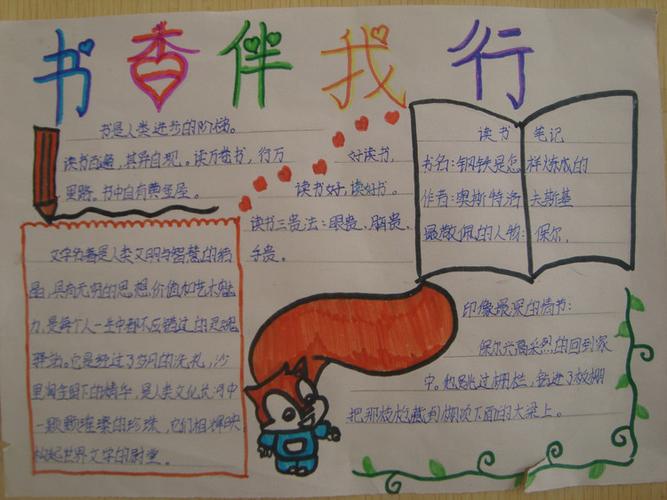 书香伴我行
书是人类进步的阶梯。
读书百遍,其异自现。读万卷书,行万
里路。书中自有黄金屋。
好读书,
读书好,读好书。
读书三贵法:眼贵、脑贵、
手贵。
读书 笔记
书名:钢铁是怎样炼成的
作者:奥斯特洛夫斯基
最敬佩的人物:保尔.
文学名著是人类文明与智慧的结
晶,具有无明的思想价值和艺术魅
力,是每个人一生中都不应错过的灵魂
驿站。它是经过了岁月的洗礼,沙
里淘金留下的精华,是人类文化长河中
一颗颗璀璨的珍珠,它们相辉映
构起世界文学的殿堂。
印像最深的情节:
保尔兴高采烈的回到家
中。他跳过栅栏,钻进了板棚
把那枝枪藏到棚顶下面的大梁上。